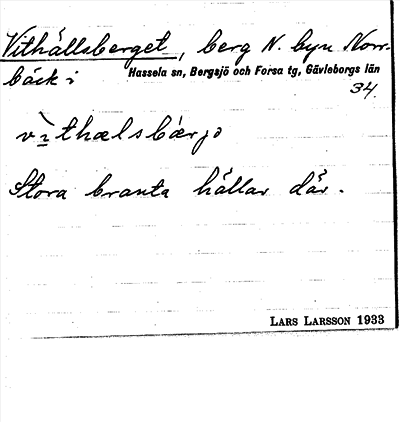 Vithällsberget, berg N. byn Norr-
bäck i Hassela sn, Bergsjö och Forsa tg, Gävleborgs län
34.
vìthælsbærjə
Stora branta hällar där.
LARS LARSSON 1933